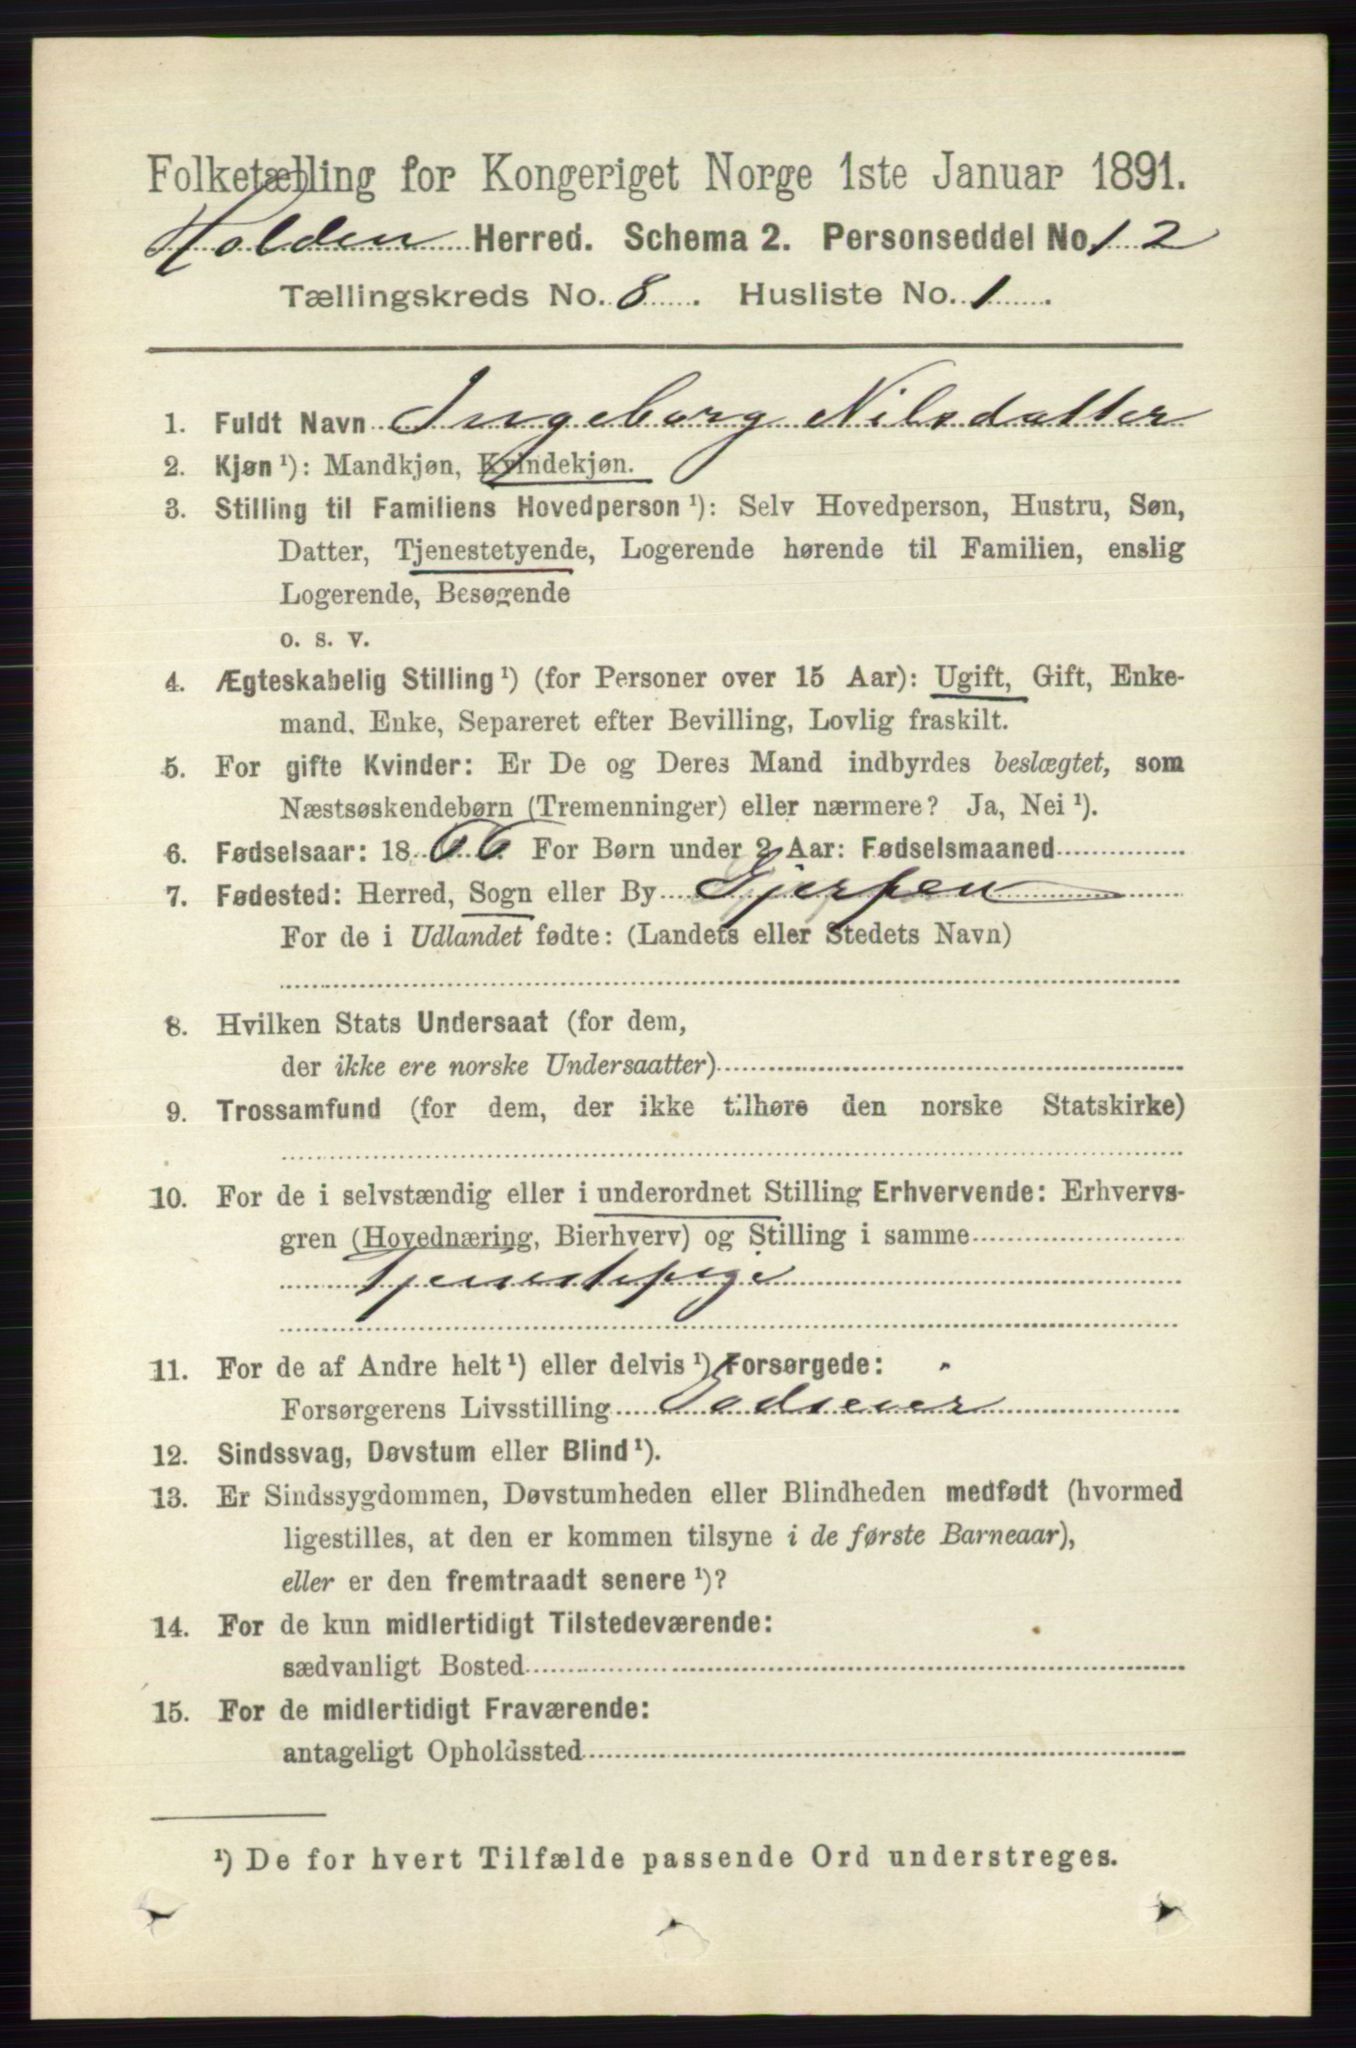 Folketælling for Kongeriget Norge 1ste Januar 1891.
Holden Herred. Schema 2. Personseddel No. 12
Tællingskreds No. 8. Husliste No. 1.
1. Fuldt Navn Ingeborg Nilsdatter
2. Kjøn¹): Mandkjøn, Kvindekjøn.
3. Stilling til Familiens Hovedperson¹): Selv Hovedperson, Hustru, Søn,
Datter, Tjenestetyende, Logerende hørende til Familien, enslig
Logerende, Besøgende
o. s. v.
4. Ægteskabelig Stilling¹) (for Personer over 15 Aar): Ugift, Gift, Enke-
mand, Enke, Separeret efter Bevilling, Lovlig fraskilt.
5. For gifte Kvinder: Er De og Deres Mand indbyrdes beslægtet, som
Næstsøskendebørn (Tremenninger) eller nærmere? Ja, Nei¹).
6. Fødselsaar: 1866. For Børn under 2 Aar: Fødselsmaaned
7. Fødested: Herred, Sogn eller By Gjerpen
For de i Udlandet fødte: (Landets eller Stedets Navn)
8. Hvilken Stats Undersaat (for dem,
der ikke ere norske Undersaatter)
9. Trossamfund (for dem, der ikke tilhøre den norske Statskirke)
10. For de i selvstændig eller i underordnet Stilling Erhvervende: Erhvervs-
gren (Hovednæring, Bierhverv) og Stilling i samme
Tjenestepige
11. For de af Andre helt¹) eller delvis¹) Forsørgede:
Forsørgerens Livsstilling Godseier
12. Sindssvag, Døvstum eller Blind¹).
13. Er Sindssygdommen, Døvstumheden eller Blindheden medfødt (hvormed
ligestilles, at den er kommen tilsyne i de første Barneaar),
eller er den fremtraadt senere¹)?
14. For de kun midlertidigt Tilstedeværende:
sædvanligt Bosted
15. For de midlertidigt Fraværende:
antageligt Opholdssted
¹) De for hvert Tilfælde passende Ord understreges.